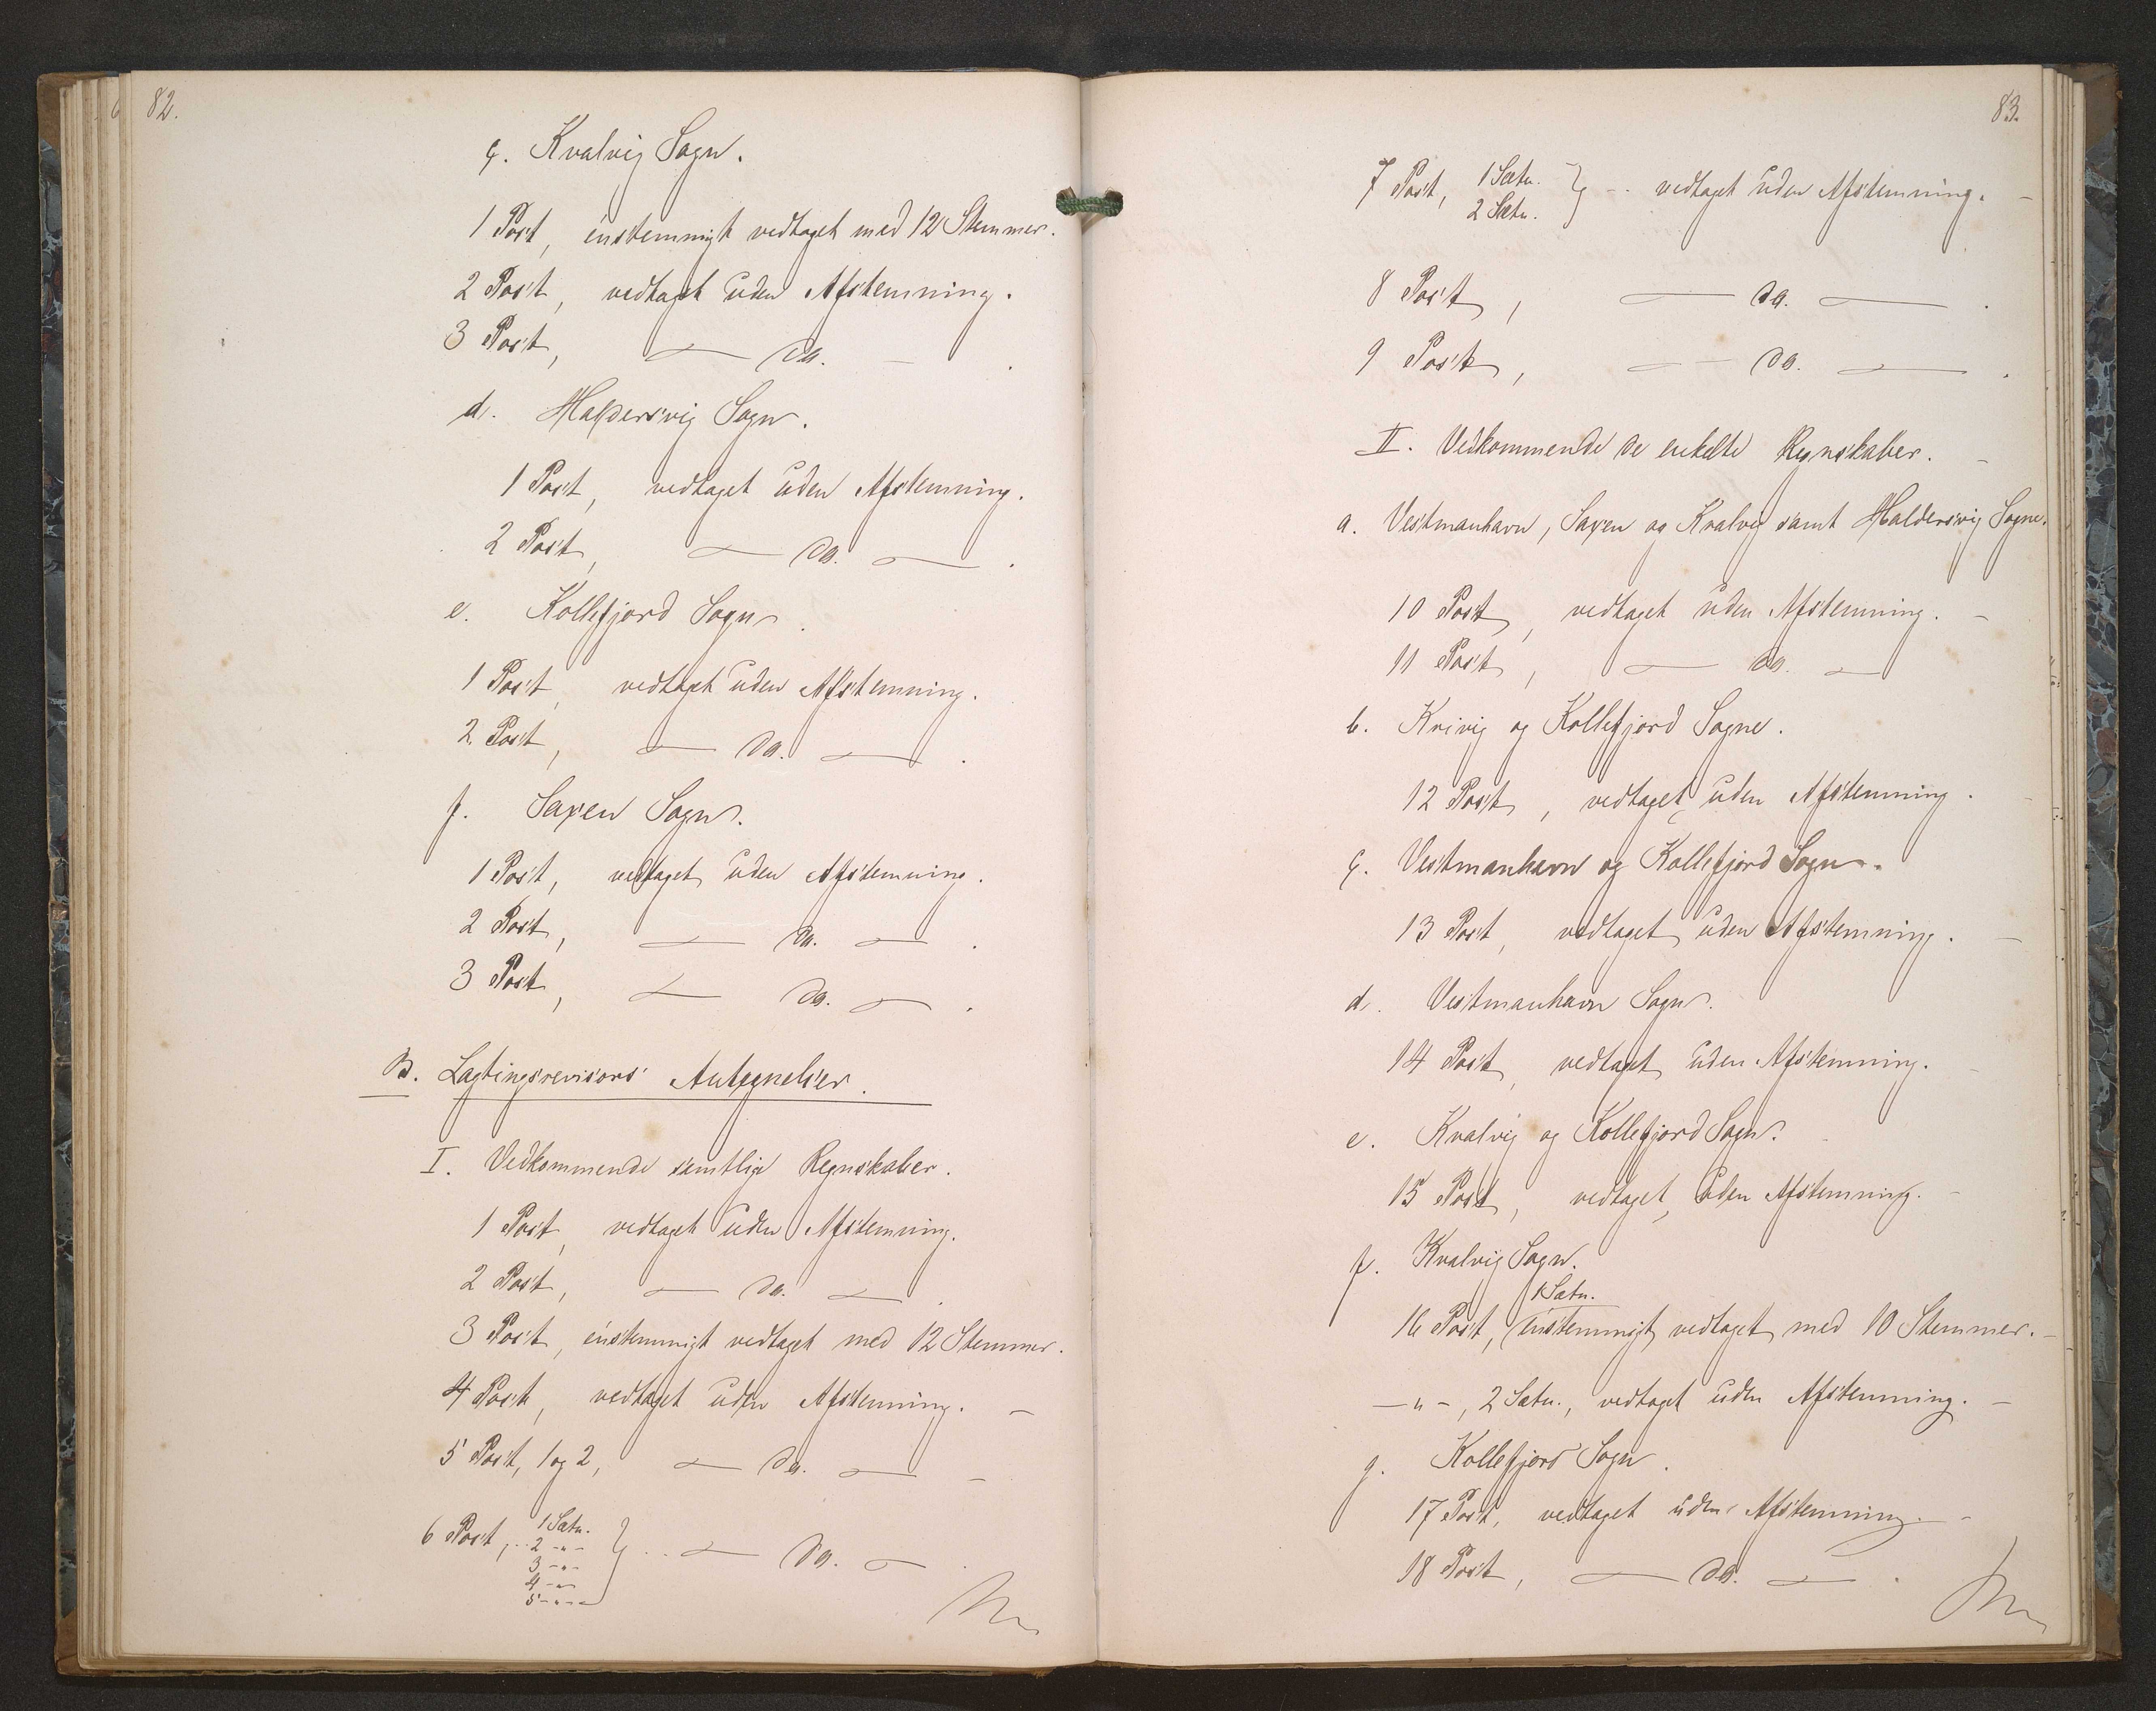 82.
c. Kvalvig Sogn.
1 Post, enstemmigt vedtaget med 12 Stemmer.
2 Post, vedtaget uden Afstemning.
3 Post, — do. — .
d. Haldersvig Sogn.
1 Post, vedtaget uden Afstemning.
2 Post, — do. — .
e. Kollefjord Sogn.
1 Post, vedtaget uden Afstemning.
2 Post, — do. — .
f. Saxen Sogn.
1 Post, vedtaget uden Afstemning.
2 Post, — do. — .
3 Post, — do. — .
B. Lagtingsrevisors Antegnelser.
I. Vedkommende samtlige Regnskaber.
1 Post, vedtaget uden Afstemning.
2 Post, — do. — .
3 Post, enstemmigt vedtaget med 12 Stemmer.
4 Post, vedtaget uden Afstemning. —
5 Post, 1 og 2, — do. — –
6 Post, 1 Sætn. } — do. — .
2 -"-
3 -"-
4 -"-
5 -"-
83.
7 Post, 1 Sætn. } vedtaget uden Afstemning. –
2 Sætn.
8 Post, — do. — .
9 Post, — do. — .
II. Vedkommende de enkelte Regnskaber. –
a. Vestmanhavn, Saxen og Kvalvig samt Haldersvig Sogne.
10 Post, vedtaget uden Afstemning. –
11 Post, — do. —
b. Kvivig og Kollefjord Sogne.
12 Post, vedtaget uden Afstemning. –
c. Vestmanhavn og Kollefjord Sogn.
13 Post, vedtaget uden Afstemning. –
d. Vestmanhavn Sogn.
14 Post, vedtaget uden Afstemning. –
e. Kvalvig og Kollefjord Sogn.
15 Post, vedtaget uden Afstemning. –
f. Kvalvig Sogn.
1 Sætn.
16 Post, enstemmigt vedtaget med 10 Stemmer. –
—"—, 2 Sætn., vedtaget uden Afstemning. –
g. Kollefjord Sogn.
17 Post, vedtaget uden Afstemning. –
18 Post, — do. — .